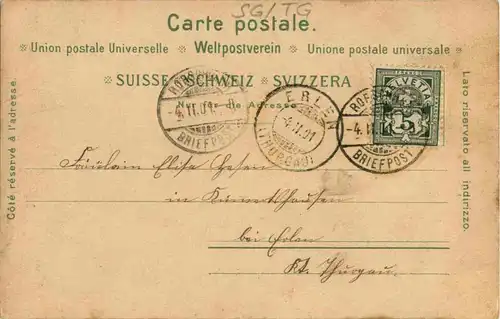 SG/TG
Carte postale.
Union postale Universelle Weltpostverein Unione postale universale
SUISSE SCHWEIZ SVIZZERA
Nur für die Adresse
Côté réservé à l'adresse.
Lato riservato all indirizzo.
-4.II.01.
BRIEFPOST
ERLEN
4.II.01
(THURGAU)
HELVETIA
5
-4.II
BRIEFPOST
Fräulein Elise
in
bei Erlen
Kt. Thurgau.